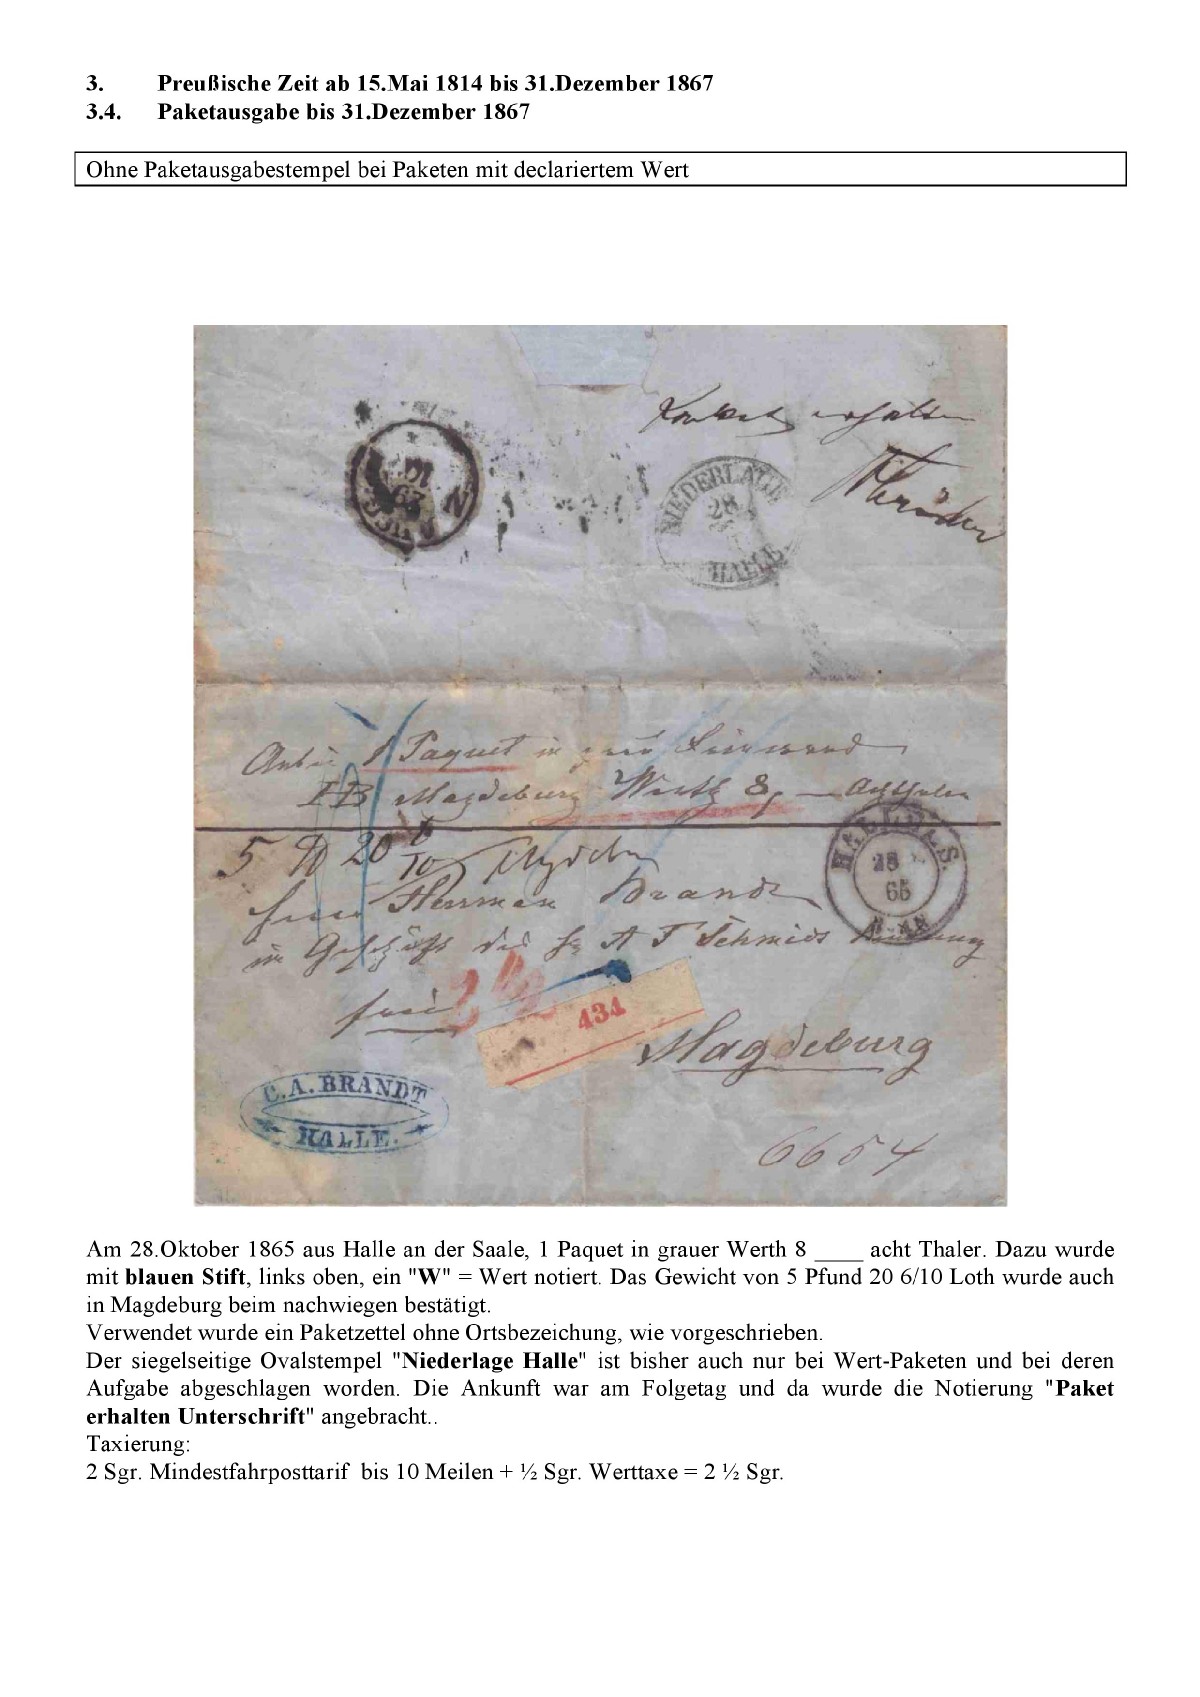 3. Preußische Zeit ab 15.Mai 1814 bis 31.Dezember 1867
3.4. Paketausgabe bis 31.Dezember 1867
Ohne Paketausgabestempel bei Paketen mit declariertem Wert
erhalten
NIEDERLAGE
28
HALLE
1 Paquet in
Magdeburg Werth 8
HALLE A/S.
28
65
5 20 6/10
Herrman Brandt
im Geschäft des A F Schmidt
frei 2½
434
Magdeburg
C.A. BRANDT
HALLE.
6654
Am 28.Oktober 1865 aus Halle an der Saale, 1 Paquet in grauer Werth 8 ____ acht Thaler. Dazu wurde
mit blauen Stift, links oben, ein "W" = Wert notiert. Das Gewicht von 5 Pfund 20 6/10 Loth wurde auch
in Magdeburg beim nachwiegen bestätigt.
Verwendet wurde ein Paketzettel ohne Ortsbezeichung, wie vorgeschrieben.
Der siegelseitige Ovalstempel "Niederlage Halle" ist bisher auch nur bei Wert-Paketen und bei deren
Aufgabe abgeschlagen worden. Die Ankunft war am Folgetag und da wurde die Notierung "Paket
erhalten Unterschrift" angebracht..
Taxierung:
2 Sgr. Mindestfahrposttarif bis 10 Meilen + ½ Sgr. Werttaxe = 2 ½ Sgr.